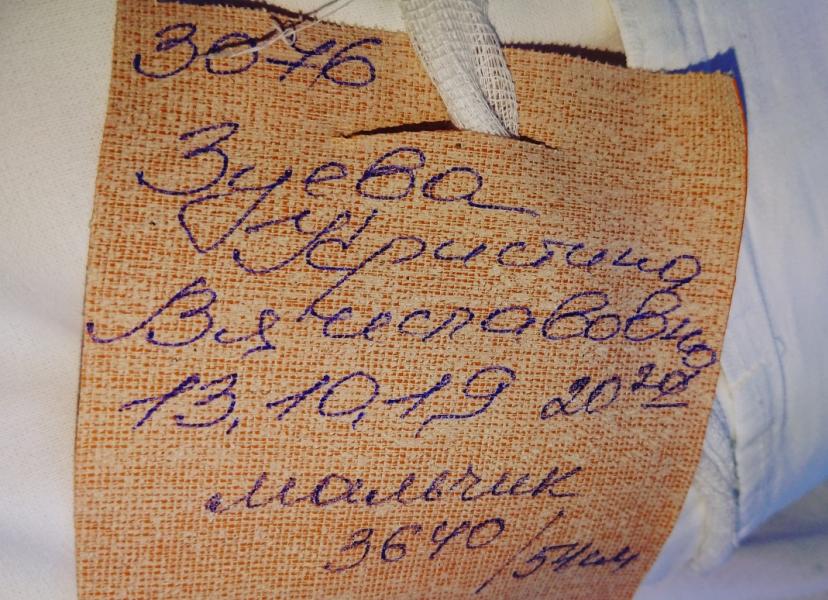 3076
Зуева
Кристина
Вячиславовна
13.10.19 20 20
мальчик
3640/54см